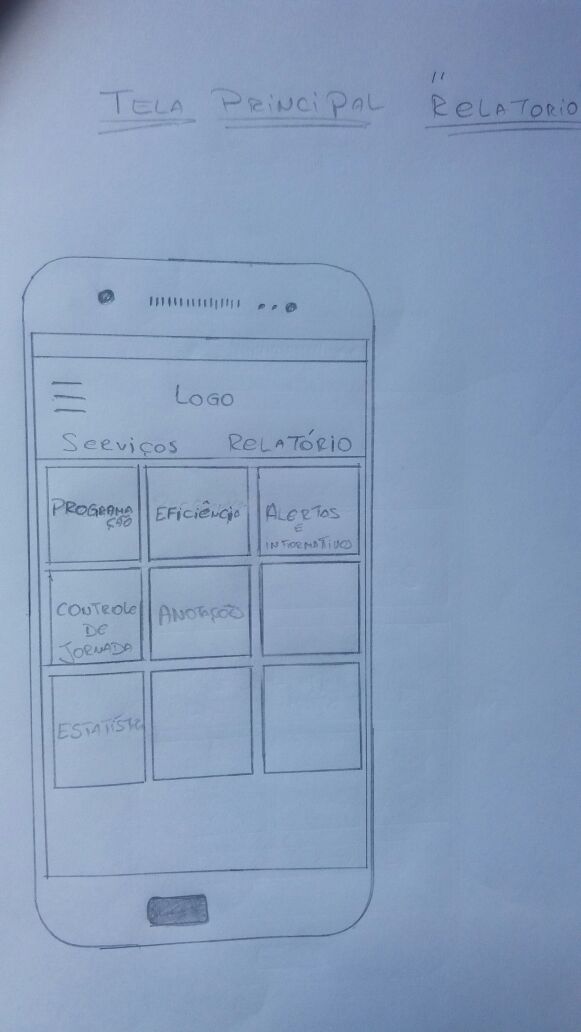 TELA PRINCIPAL "RELATORIO
LOGO
Serviços RELATÓRIO
PROGRAMA
ÇÃO
EFICIÊNCIA
ALERTAS
E
INFORMATIVOS
CONTROLE
DE
JORNADA
ANOTAÇÃO